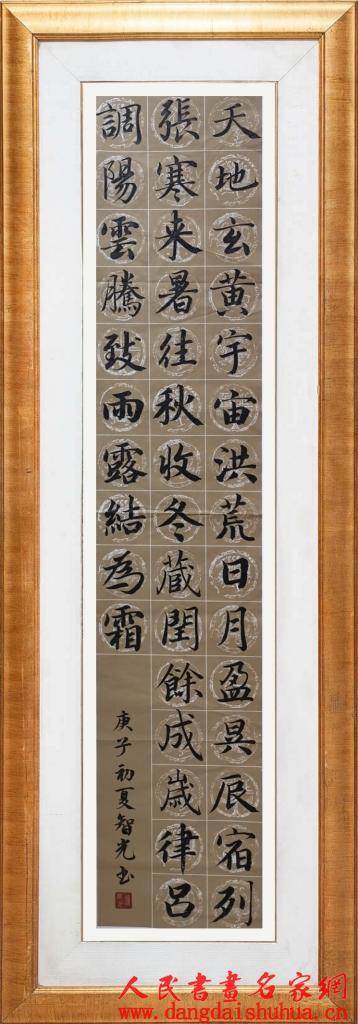 天地玄黄宇宙洪荒日月盈昃辰宿列
張寒来暑往秋收冬蔵閏餘成歲律吕
調陽雲騰致雨露結為霜
庚子初夏智光书
人民書畫名家網
www.dangdaishuhua.cn